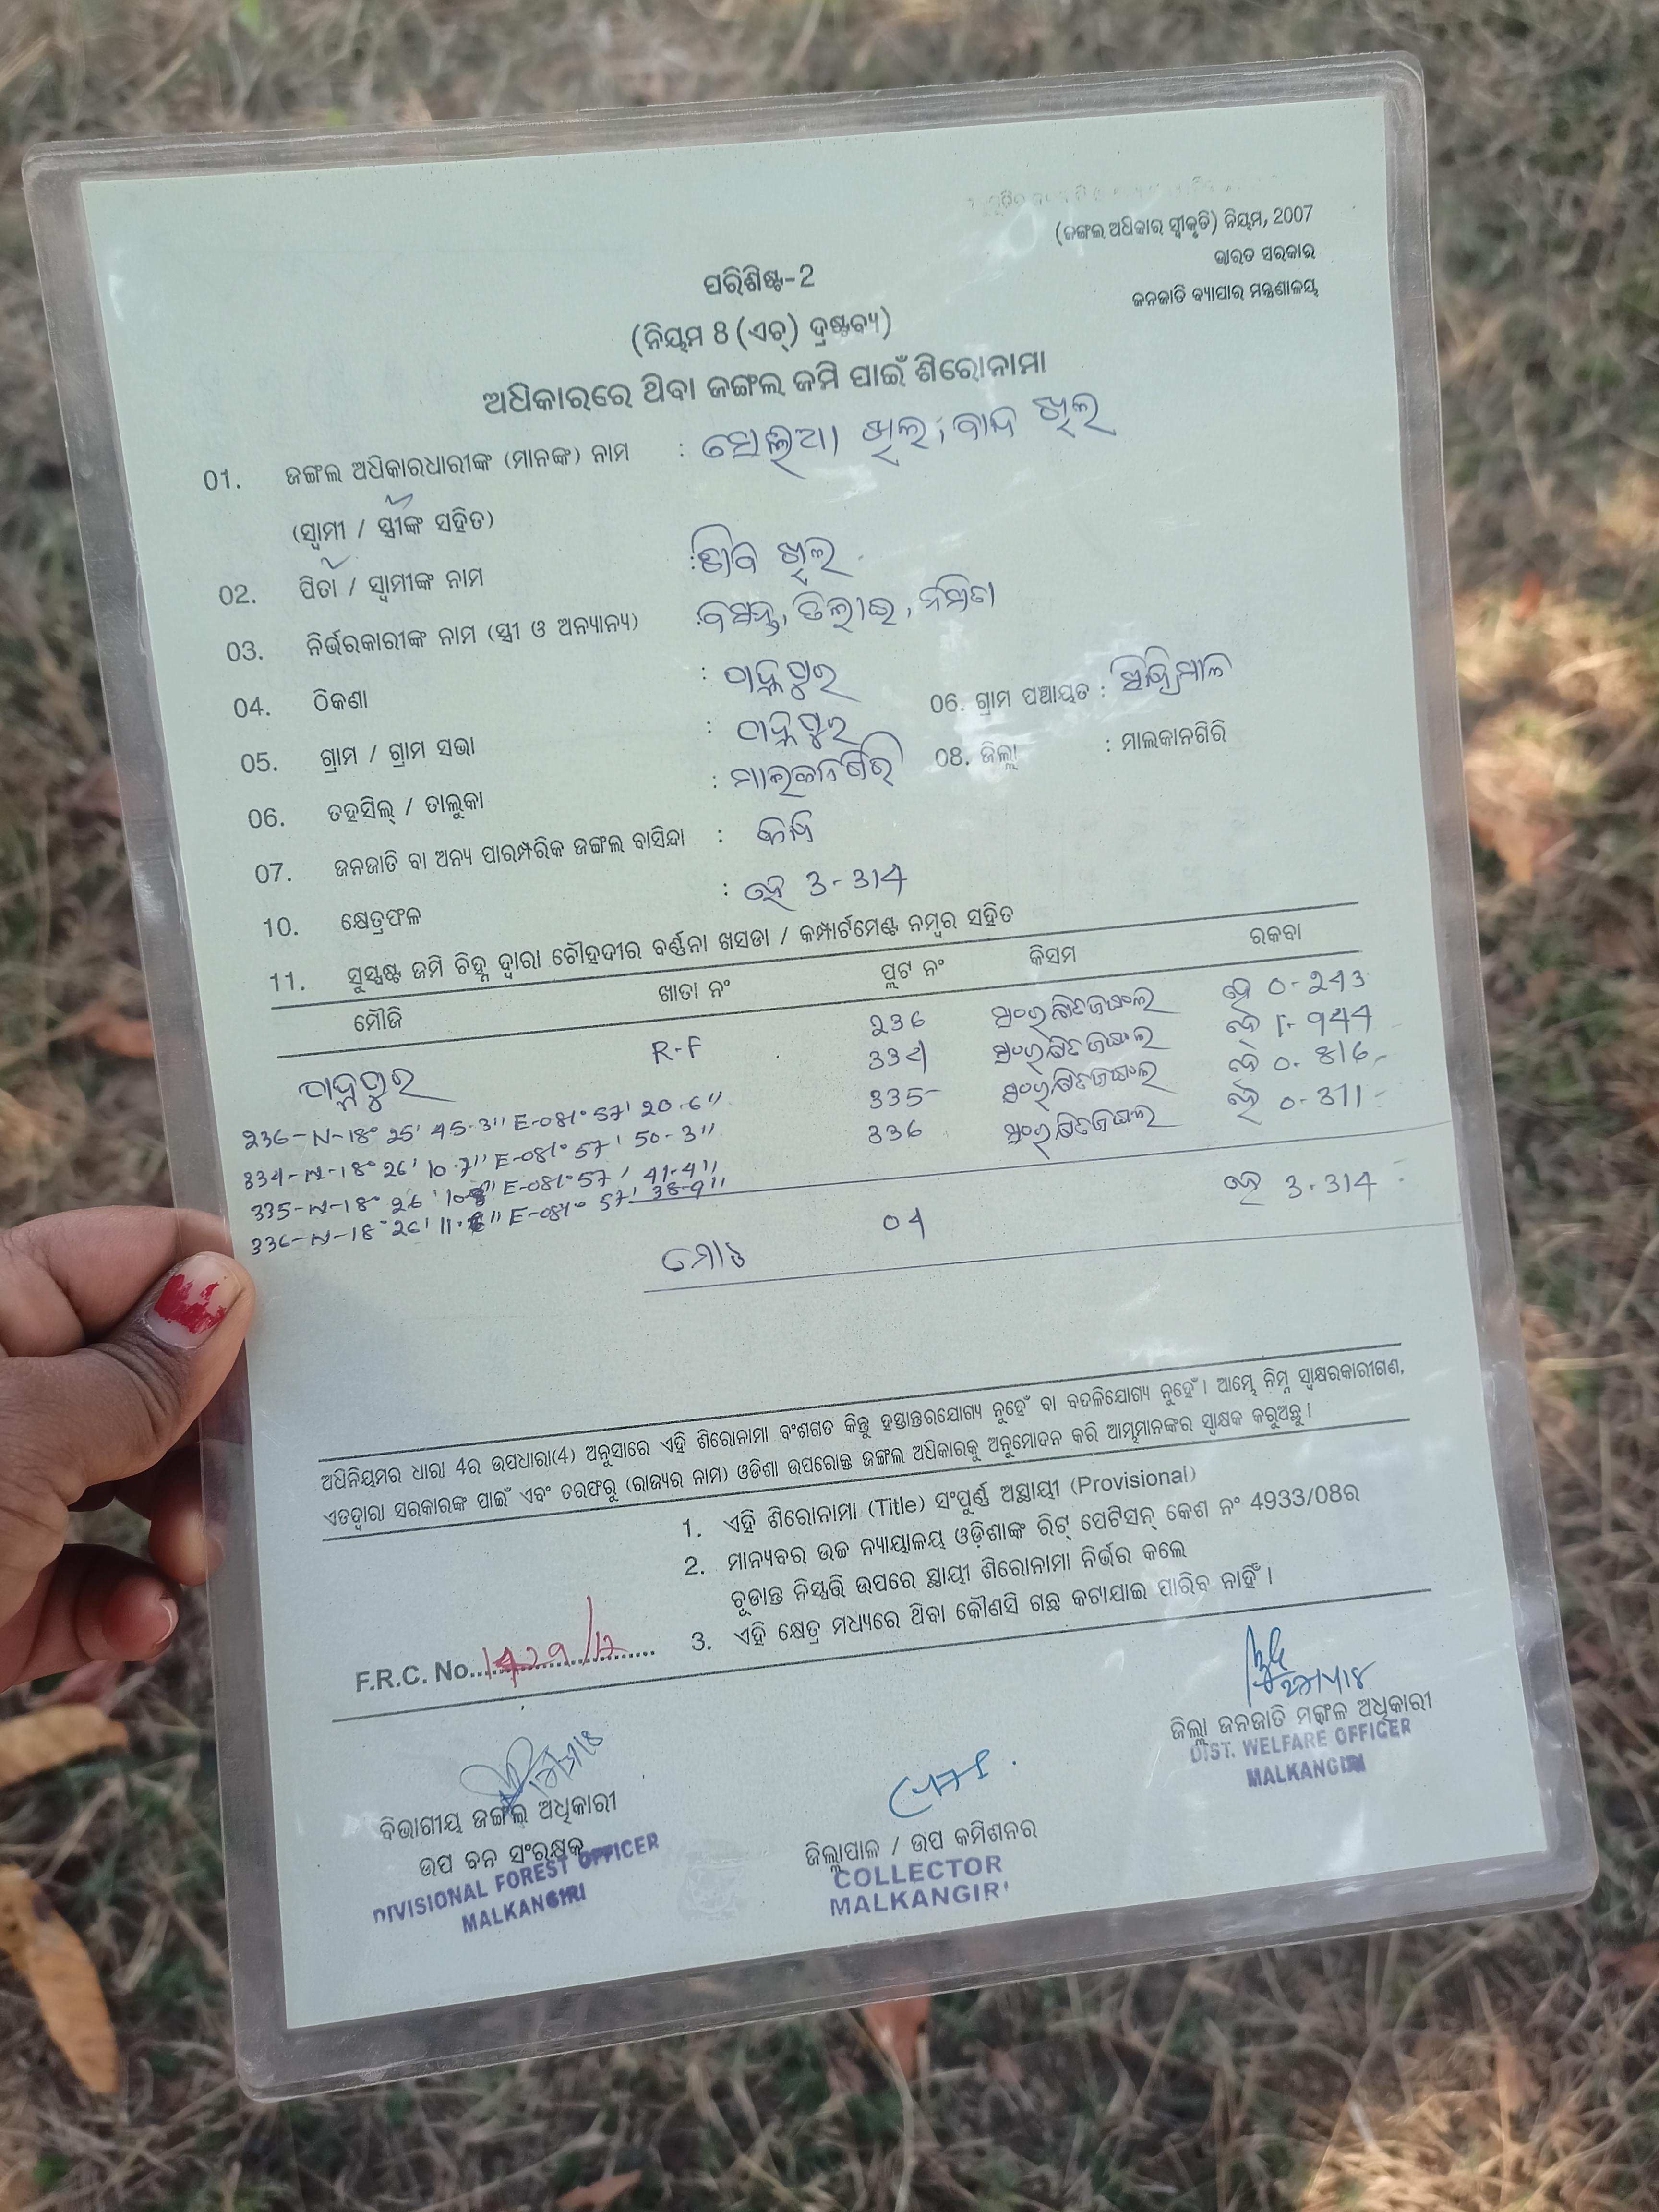 (ଜଙ୍ଗଲ ଅଧିକାର ସ୍ୱୀକୃତି) ନିୟମ, 2007
ଭାରତ ସରକାର
ଜନଜାତି ବ୍ୟାପାର ମନ୍ତ୍ରଣାଳୟ
ପରିଶିଷ୍ଟ-2
(ନିୟମ 8 (ଏଚ୍) ଦ୍ରଷ୍ଟବ୍ୟ)
ଅଧିକାରରେ ଥିବା ଜଙ୍ଗଲ ଜମି ପାଇଁ ଶିରୋନାମା
01. ଜଙ୍ଗଲ ଅଧିକାରଧାରୀଙ୍କ (ମାନଙ୍କ) ନାମ : ଖିଲ, ଖିଲ
(ସ୍ୱାମୀ / ସ୍ତ୍ରୀଙ୍କ ସହିତ)
02. ପିତା / ସ୍ୱାମୀଙ୍କ ନାମ : ଖିଲ
03. ନିର୍ଭରକାରୀଙ୍କ ନାମ (ସ୍ତ୍ରୀ ଓ ଅନ୍ୟାନ୍ୟ) : ବସନ୍ତ,
04. ଠିକଣା :
05. ଗ୍ରାମ / ଗ୍ରାମ ସଭା : 06. ଗ୍ରାମ ପଞ୍ଚାୟତ :
06. ତହସିଲ୍ / ତାଲୁକା : ମାଲକାନଗିରି 08. ଜିଲ୍ଲା : ମାଲକାନଗିରି
07. ଜନଜାତି ବା ଅନ୍ୟ ପାରମ୍ପରିକ ଜଙ୍ଗଲ ବାସିନ୍ଦା :
10. କ୍ଷେତ୍ରଫଳ : ହେ 3-314
11. ସୁସ୍ପଷ୍ଟ ଜମି ଚିହ୍ନ ଦ୍ୱାରା ଚୌହଦୀର ବର୍ଣ୍ଣନା ଖସଡା / କମ୍ପାର୍ଟମେଣ୍ଟ ନମ୍ବର ସହିତ
ମୌଜି ଖାତା ନଂ ପ୍ଲଟ ନଂ କିସମ ରକବା
R-F 236 ସଂରକ୍ଷିତ ଜଙ୍ଗଲ ହେ 0-243
334 ସଂରକ୍ଷିତ ଜଙ୍ଗଲ ହେ 1-944
335 ସଂରକ୍ଷିତ ଜଙ୍ଗଲ ହେ 0.816
336 ସଂରକ୍ଷିତ ଜଙ୍ଗଲ ହେ 0-311
236-N-18° 25' 45.3" E-081° 57' 20.6"
334-N-18° 26' 10.7" E-081° 57' 50-3"
335-N-18° 26' E-081° 57' 41-4"
336-N-18° 26' E-081° 57' 38-9"
ମୋଟ 04 ହେ 3.314
ଅଧିନିୟମର ଧାରା 4ର ଉପଧାରା(4) ଅନୁସାରେ ଏହି ଶିରୋନାମା ବଂଶଗତ କିନ୍ତୁ ହସ୍ତାନ୍ତରଯୋଗ୍ୟ ନୁହେଁ ବା ବଦଳିଯୋଗ୍ୟ ନୁହେଁ । ଆମ୍ଭେ ନିମ୍ନ ସ୍ୱାକ୍ଷରକାରୀଗଣ,
ଏତଦ୍ୱାରା ସରକାରଙ୍କ ପାଇଁ ଏବଂ ତରଫରୁ (ରାଜ୍ୟର ନାମ) ଓଡିଶା ଉପରୋକ୍ତ ଜଙ୍ଗଲ ଅଧିକାରକୁ ଅନୁମୋଦନ କରି ଆତ୍ମମାନଙ୍କର ସ୍ୱାକ୍ଷକ କରୁଅଛୁ ।
1. ଏହି ଶିରୋନାମା (Title) ସଂପୁର୍ଣ୍ଣ ଅସ୍ଥାୟୀ (Provisional)
2. ମାନ୍ୟବର ଉଚ୍ଚ ନ୍ୟାୟାଳୟ ଓଡ଼ିଶାଙ୍କ ରିଟ୍ ପେଟିସନ୍ କେଶ ନଂ 4933/08ର
ଚୂଡାନ୍ତ ନିସ୍ପତ୍ତି ଉପରେ ସ୍ଥାୟୀ ଶିରୋନାମା ନିର୍ଭର କଲେ
3. ଏହି କ୍ଷେତ୍ର ମଧ୍ୟରେ ଥିବା କୌଣସି ଗଛ କଟାଯାଇ ପାରିବ ନାହିଁ ।
F.R.C. No.
ବିଭାଗୀୟ ଜଙ୍ଗଲ ଅଧିକାରୀ
ଉପ ବନ ସଂରକ୍ଷକ
DIVISIONAL FOREST OFFICER
MALKANGIRI
ଜିଲ୍ଲାପାଳ / ଉପ କମିଶନର
COLLECTOR
MALKANGIRI
ଜିଲ୍ଲା ଜନଜାତି ମଙ୍ଗଳ ଅଧିକାରୀ
DIST. WELFARE OFFICER
MALKANGIRI